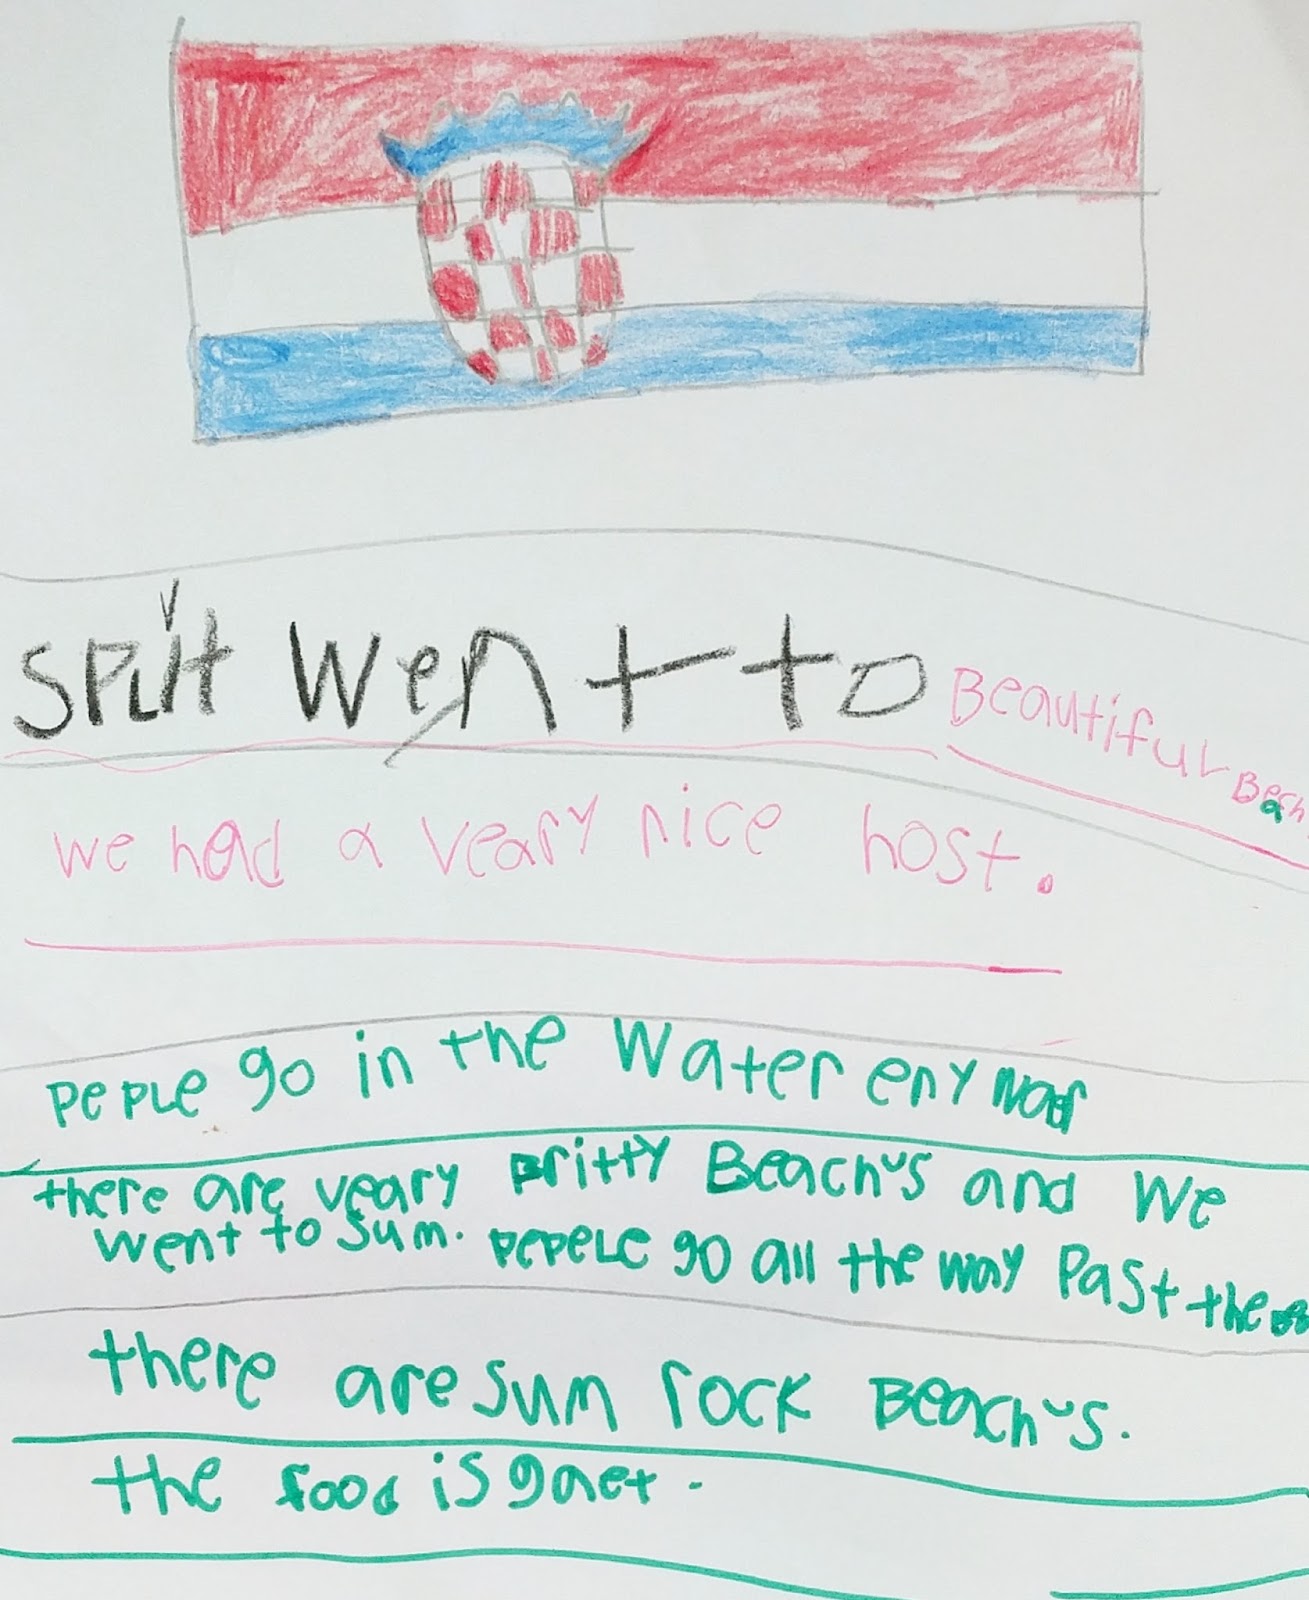 split went to Beautiful Beach
we had a veary nice host.
pePLe go in the water eny
there are veary pritty Beachus and we
went to sum. pepeLe go all the way Past the
there are sum rock Beachus.
the food is gaet.